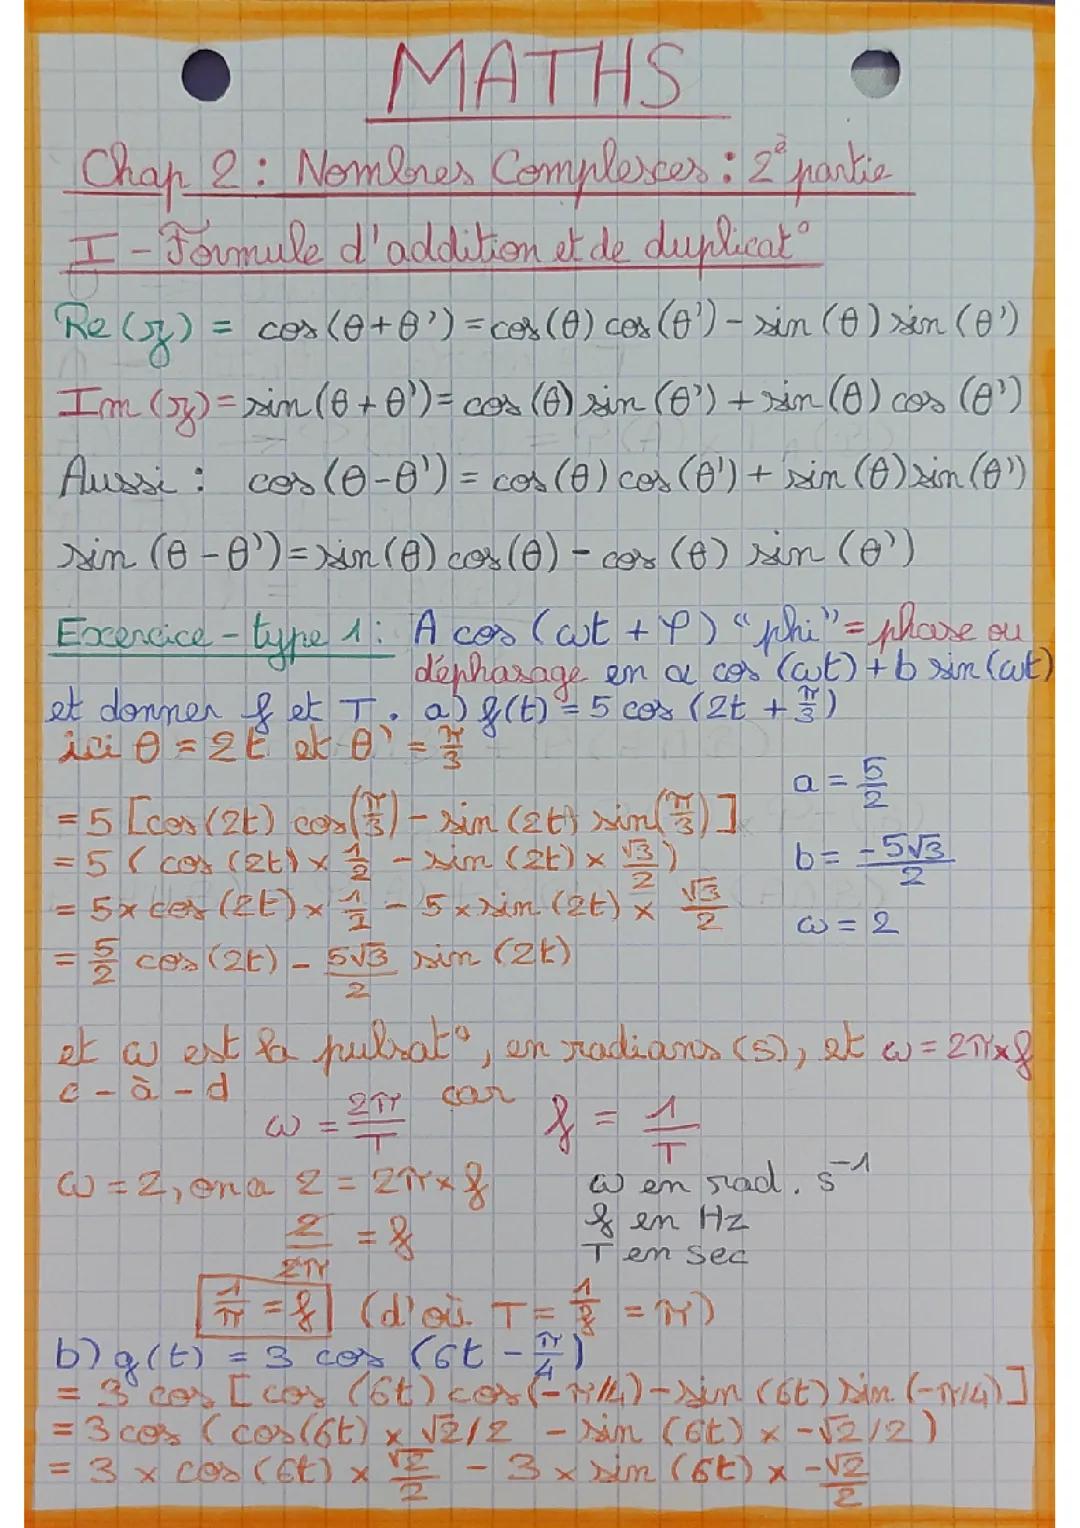 MATHS
Chap 2 : Nombres Complexes : 2è partie
I - Formule d'addition et de duplicat°
Re(z) = cos(θ+θ') = cos(θ) cos(θ') - sin(θ) sin(θ')
Im(z) = sin(θ+θ') = cos(θ) sin(θ') + sin(θ) cos(θ')
Aussi : cos(θ-θ') = cos(θ) cos(θ') + sin(θ) sin(θ')
sin(θ-θ') = sin(θ) cos(θ) - cos(θ) sin(θ')
Exercice - type 1 : A cos(ωt + φ) "phi" = phase ou
déphasage en a cos(ωt) + b sin(ωt)
et donner f et T. a) f(t) = 5 cos(2t + π/3)
ici θ = 2t et θ' = π/3
a = 5/2
= 5 [cos(2t) cos(π/3) - sin(2t) sin(π/3)]
= 5 (cos(2t) × 1/2 - sin(2t) × √3/2)
b = -5√3/2
= 5 × cos(2t) × 1/2 - 5 × sin(2t) × √3/2
ω = 2
= 5/2 cos(2t) - 5√3/2 sin(2t)
et ω est la pulsat°, en radians (s), et ω = 2π×f
c-à-d ω = 2π/T car f = 1/T
ω = 2, on a 2 = 2π×f
ω en rad.s⁻¹
2/2π = f
f en Hz
T en sec
1/π = f (d'où T = 1/f = π)
b) g(t) = 3 cos(6t - π/4)
= 3 cos [cos(6t) cos(-π/4) - sin(6t) sin(-π/4)]
= 3 cos (cos(6t) × √2/2 - sin(6t) × -√2/2)
= 3 × cos(6t) × √2/2 - 3 × sin(6t) × -√2/2